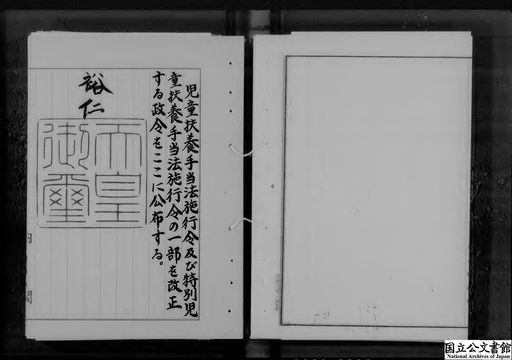 児童扶養手当法施行令及び特別児
童扶養手当法施行令の一部を改正
する政令をここに公布する。
裕仁
天皇
御璽
国立公文書館
National Archives of Japan